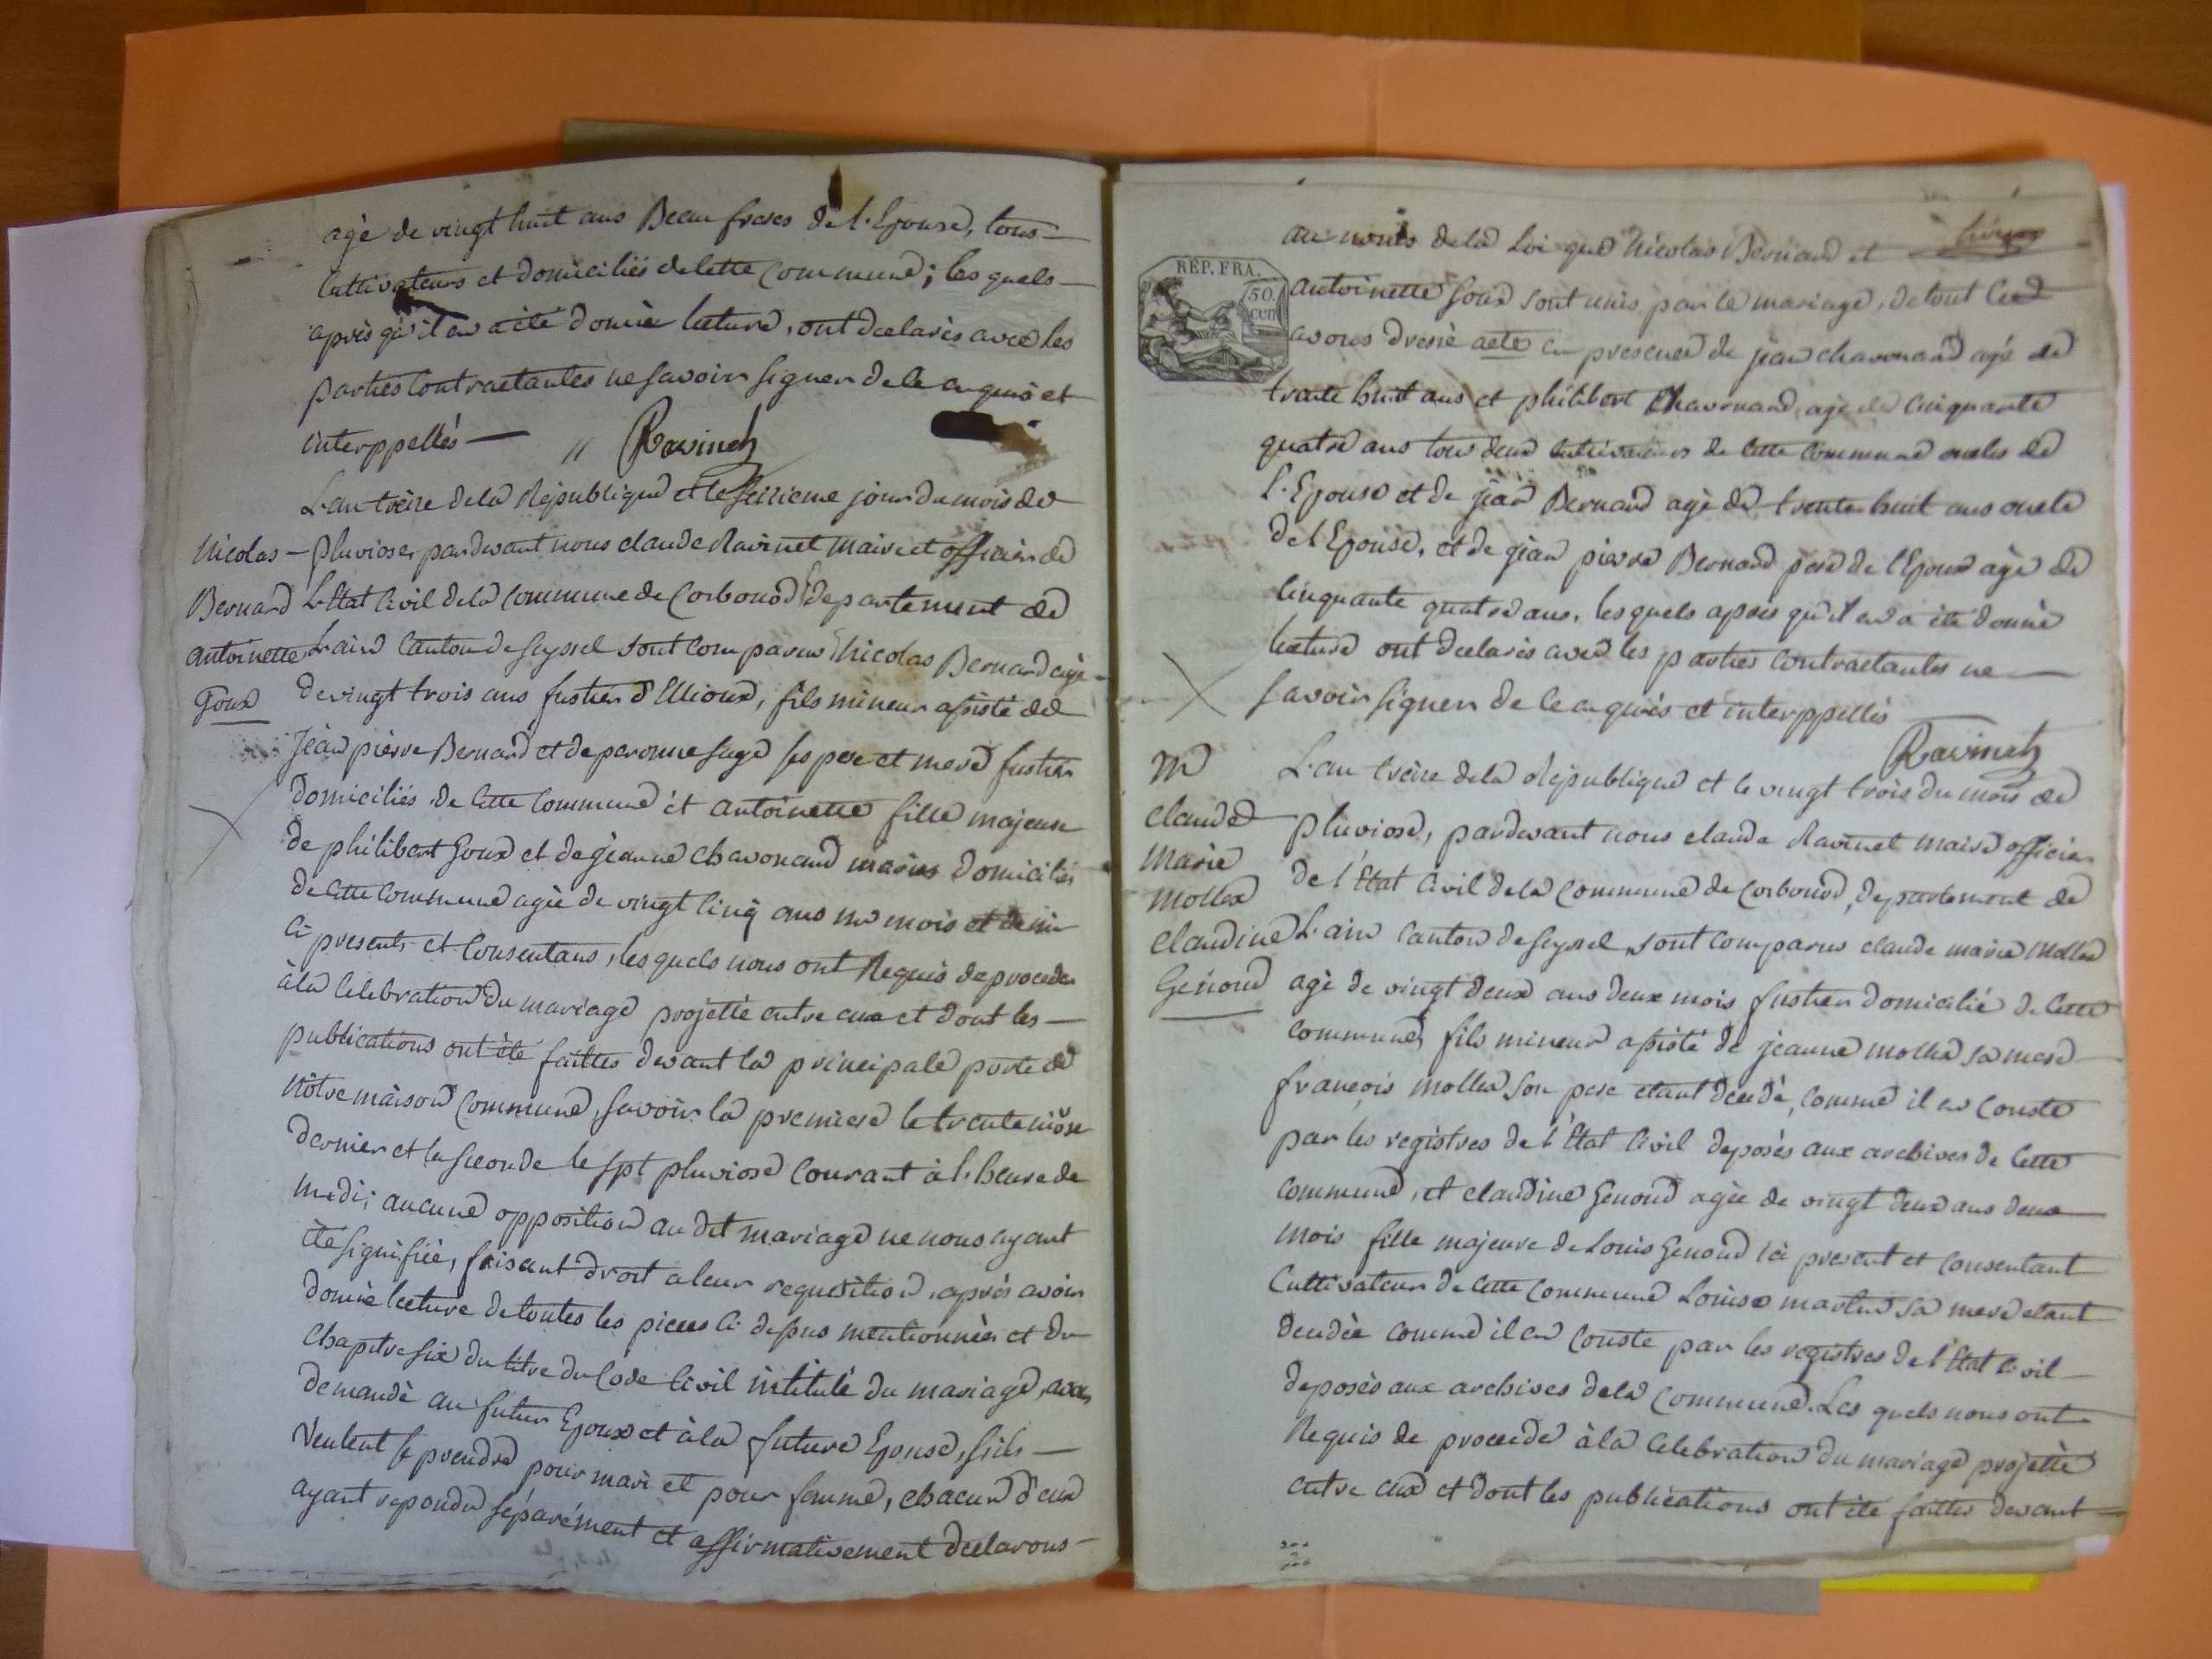 agé de vingt huit ans Beau freres de l'Epouse, tous
Cultivateurs et domiciliés de cette Commune ; les quels
après qu'il en a été donné lecture, ont declarés avec les
parties Contractantes ne savoir signer de ce enquis et
interppellés // Ravinet
L'an treize de la Republique et le seizieme jour du mois de
Nicolas pluviose, pardevant nous claude Ravinet Maire et officier de
Bernard L'Etat Civil de la Commune de Corbonod departement de
antoinette L'ain Canton de Seyssel sont comparus Nicolas Bernard agé
Goux de vingt trois ans fustier d'Ellioux, fils mineur assisté de
Jean pierre Bernard et de peronne Sage ses pere et mere fustier
domiciliés de Cette Commune et antoinette fille majeure
de philibert Goux et de jeanne Chavonand mariés domiciliés
de Cette Commune agée de vingt Cinq ans un mois et demi
Ci presents et Consentans, les quels nous ont Requis de proceder
à la Celebration du mariage projetté entre eux et dont les
publications ont été faittes devant la principale porte de
Nôtre maison Commune, savoir la premiere le trente nivôse
dernier et la seconde le spt pluviose Courant à l'heure de
midi ; aucune opposition au dit mariage ne nous ayant
été signifiée, faisant droit a leur requisition, après avoir
donné lecture de toutes les pieces Ci dessus mentionnées et du
Chapitre six du titre du Code Civil intitulé du mariage, avons
demandé au futur Epoux et à la future Epouse, s'ils
veulent se prendre pour mari et pour femme, chacun d'eux
ayant repondu séparément et affirmativement declarons
au nom de la Loi que Nicolas Bernard et
RÉP. FRA.
50.
cen
antoinette Goux sont unis par le mariage, de tout ce
avons dressé acte en presence de jean chavonand agé de
trente huit ans et philibert Chavonand, agé de Cinquante
quatre ans tous deux Cultivateurs de Cette Commune oncles de
l'Epouse et de jean Bernard agé de trente huit ans oncle
de l'Epouse, et de jean pierre Bernard pere de l'Epoux agé de
Cinquante quatre ans, les quels après qu'il en a été donné
lecture ont declarés avec les parties Contractantes ne
savoir signer de ce enquis et interppellés
Ravinet
L'an treize de la Republique et le vingt trois du mois de
Claude pluviose, pardevant nous claude Ravinet maire officier
Marie de l'Etat Civil de la Commune de Corbonod, departement de
Mollex
Claudine L'ain Canton de Seyssel, sont comparus claude marie Mollex
Genoud agé de vingt deux ans deux mois fustier domicilié de Cette
Commune, fils mineur assisté de jeanne mollex sa mere
françois mollex son pere etant decedé, comme il en Conste
par les registres de l'Etat Civil deposés aux archives de Cette
Commune, et claudine Genoud agée de vingt deux ans deux
mois fille majeure de Louis Genoud ici present et Consentant
Cultivateur de Cette Commune Louise martin sa mere etant
decedée comme il en Conste par les registres de l'Etat Civil
deposés aux archives de la Commune. Les quels nous ont
Requis de proceder à la Celebration du mariage projetté
entre eux et dont les publications ont été faittes devant